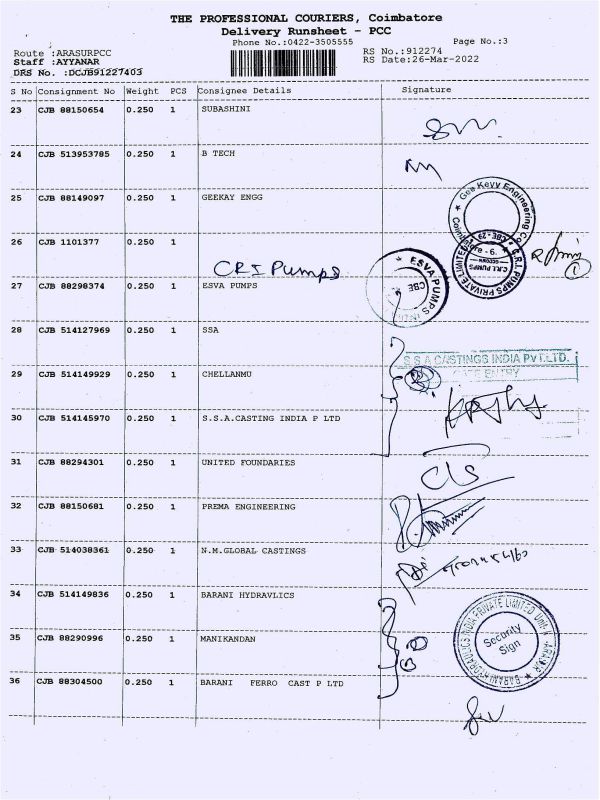 THE PROFESSIONAL COURIERS, Coimbatore
Delivery Runsheet - PCC
Phone No.:0422-3505555 Page No.:3
Route :ARASURPCC RS No.:912274
Staff :AYYANAR RS Date:26-Mar-2022
DRS No. :DCJB91227403
S No Consignment No Weight PCS Consignee Details Signature
23 CJB 88150654 0.250 1 SUBASHINI
24 CJB 513953785 0.250 1 B TECH
25 CJB 88149097 0.250 1 GEEKAY ENGG
Gee Keyy Engineering Co
26 CJB 1101377 0.250 1
CRI Pumps
C.R.I. PUMPS PRIVATE LIMITED
27 CJB 88298374 0.250 1 ESVA PUMPS
ESVA PUMPS
CBE
28 CJB 514127969 0.250 1 SSA
S S A CASTINGS INDIA PVT.LTD.
29 CJB 514149929 0.250 1 CHELLANMU
30 CJB 514145970 0.250 1 S.S.A.CASTING INDIA P LTD
31 CJB 88294301 0.250 1 UNITED FOUNDARIES
32 CJB 88150681 0.250 1 PREMA ENGINEERING
33 CJB 514038361 0.250 1 N.M.GLOBAL CASTINGS
34 CJB 514149836 0.250 1 BARANI HYDRAVLICS
BARANI HYDRAULICS INDIA PRIVATE LIMITED
Security
Sign
35 CJB 88290996 0.250 1 MANIKANDAN
36 CJB 88304500 0.250 1 BARANI FERRO CAST P LTD